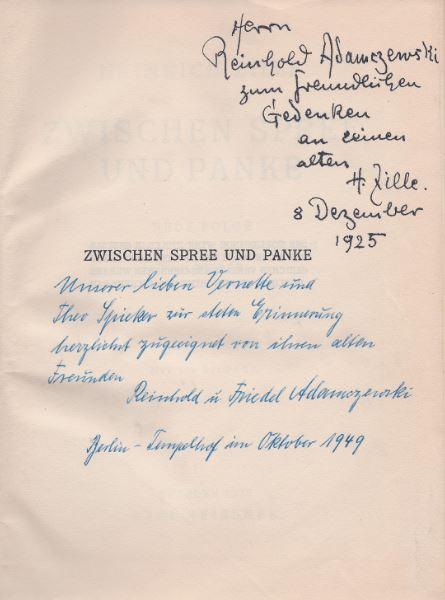 Herrn
Reinhold Adamczewski
zum freundlichen
Gedenken
an seinen
alten
H. Zille.
8 Dezember
1925
ZWISCHEN SPREE UND PANKE
Unserer lieben Vernette und
Theo Spieker zur steten Erinnerung
herzlichst zugeeignet von ihren alten
Freunden
Reinhold u Friedel Adamczewski
Berlin – Tempelhof im Oktober 1949
ZWISCHEN SPREE
UND PANKE